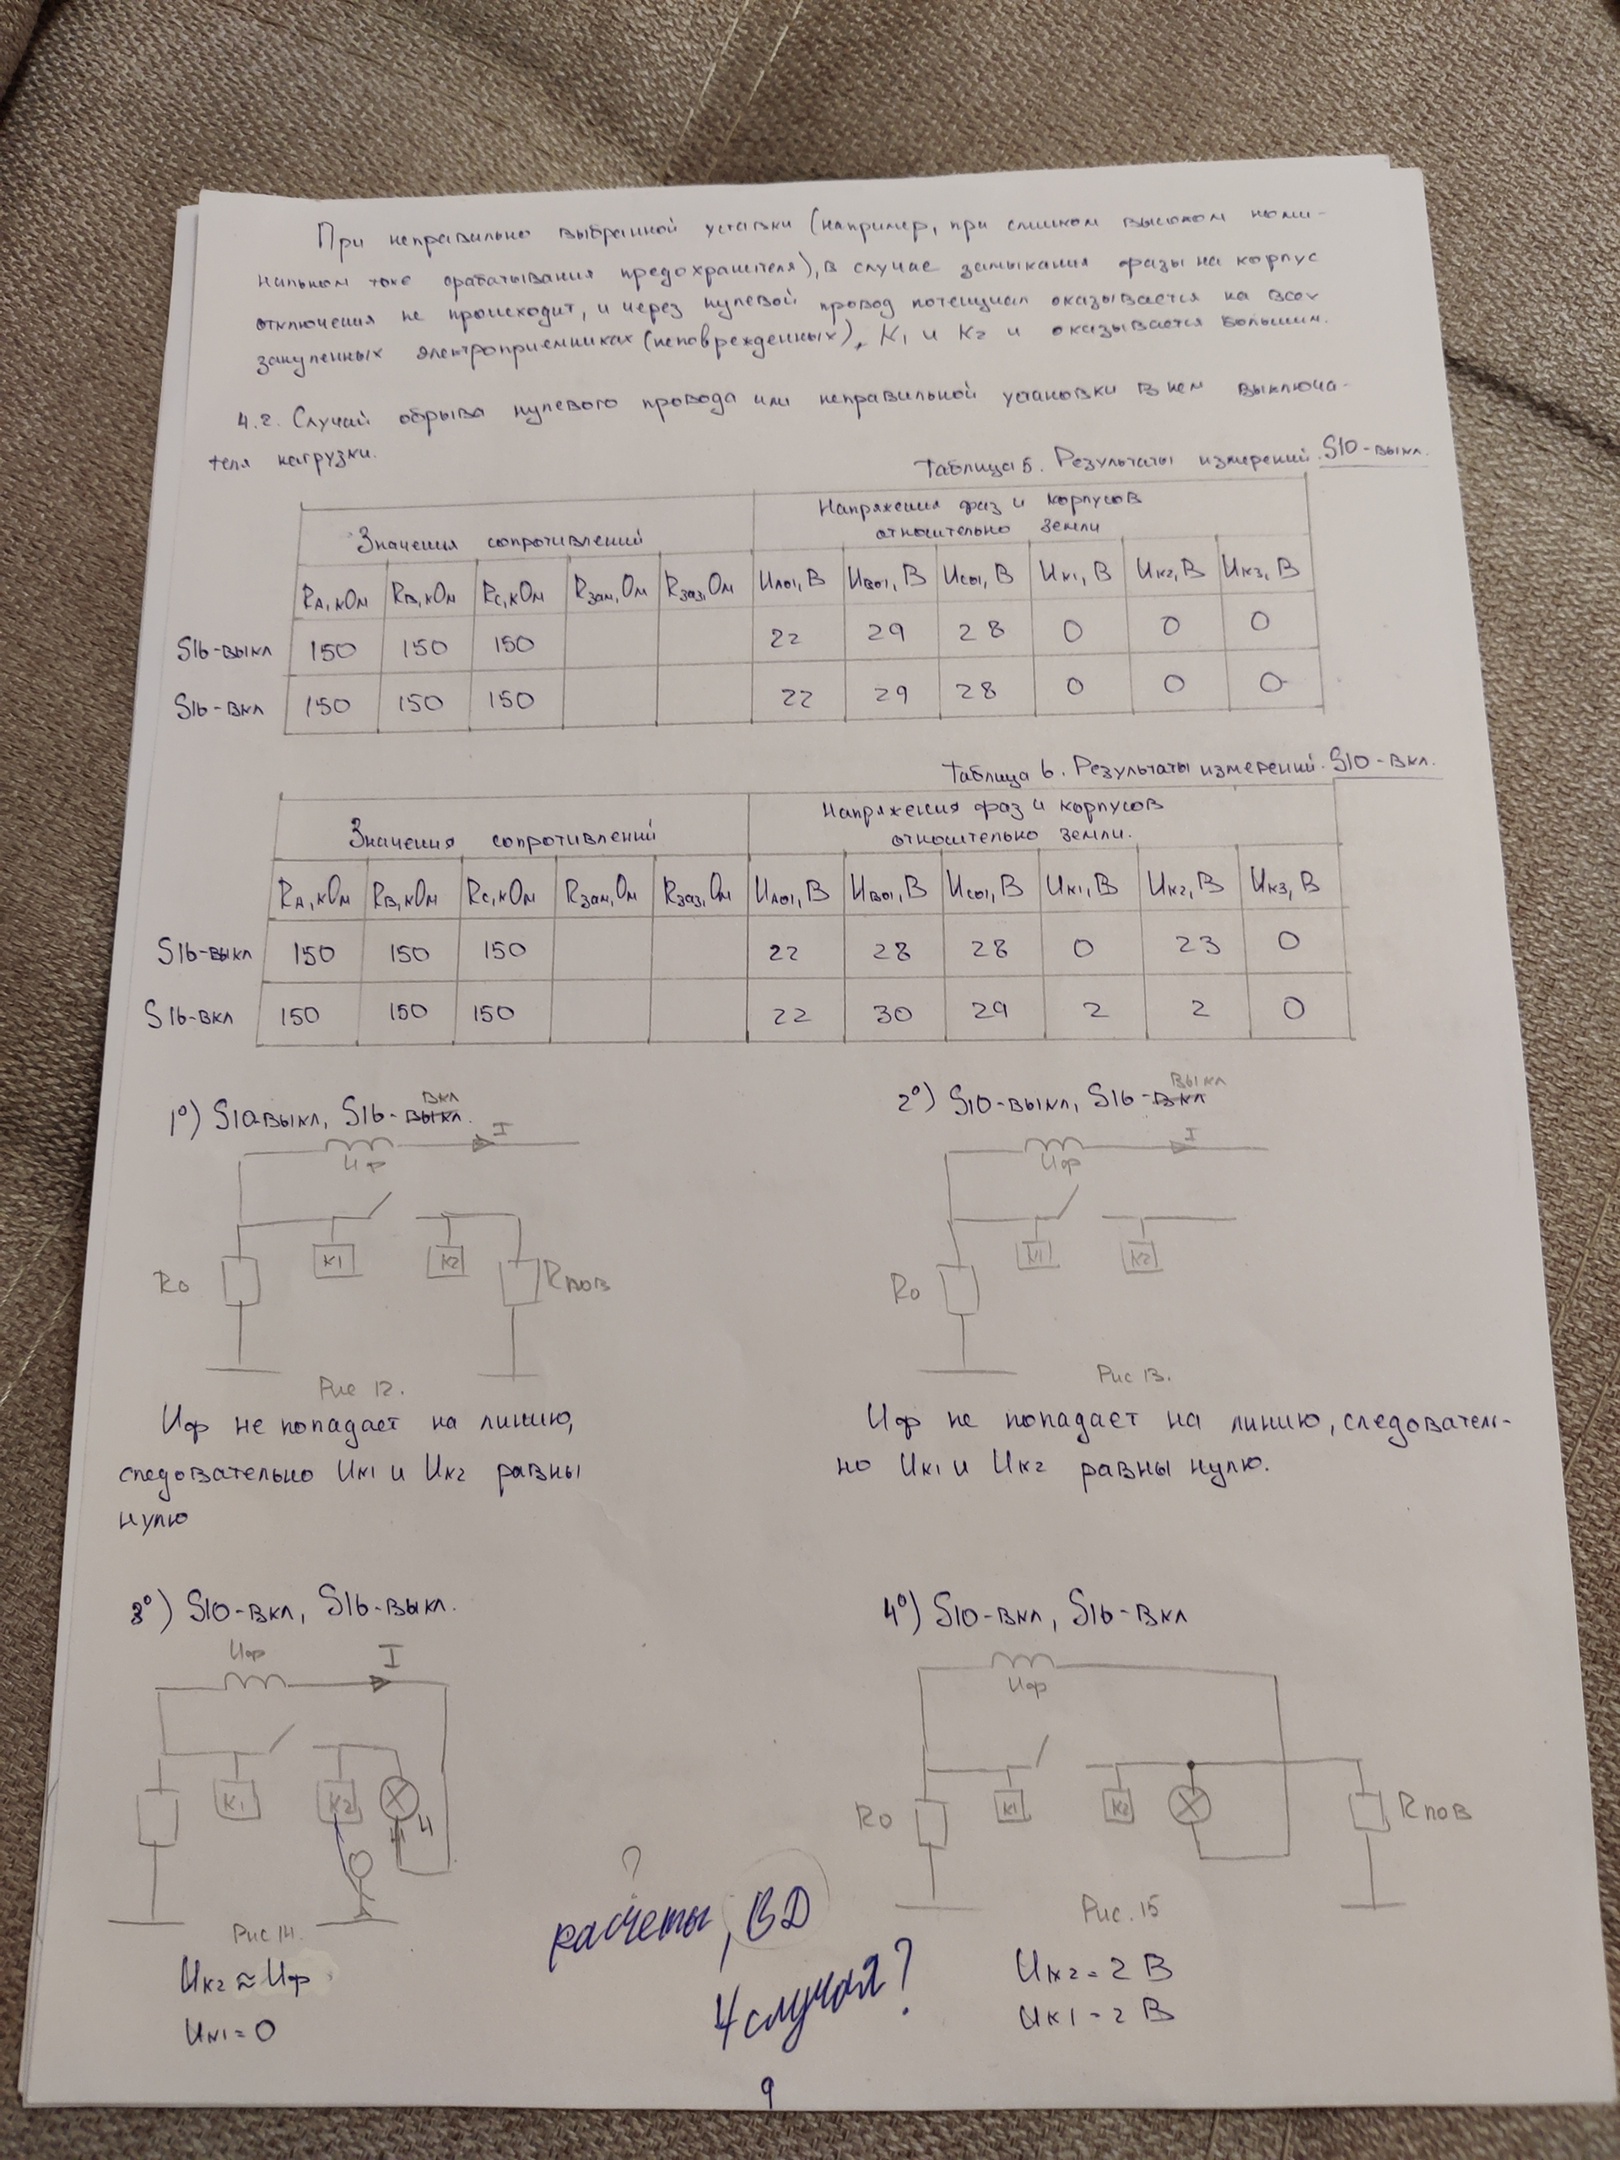 При неправильно выбранной уставки (например, при слишком высоком номи-
нальном токе срабатывания предохранителя), в случае замыкания фазы на корпус
отключения не происходит, и через нулевой провод потенциал оказывается на всех
зануленных электроприемниках (неповрежденных), К1 и К2 и оказывается большим.
4.2. Случай обрыва нулевого провода или неправильной установки в нем выключа-
теля нагрузки.
Таблица 5. Результаты измерений. S10-выкл.
Значения сопротивлений
Напряжения фаз и корпусов
относительно земли
RA, кОм RB, кОм RC, кОм Rзам, Ом Rзаз, Ом UA01, В UB01, В UC01, В Uк1, В Uк2, В Uк3, В
S16-выкл 150 150 150 22 29 28 0 0 0
S16-вкл 150 150 150 22 29 28 0 0 0
Таблица 6. Результаты измерений. S10-вкл.
Значения сопротивлений
Напряжения фаз и корпусов
относительно земли.
RA, кОм RB, кОм RC, кОм Rзам, Ом Rзаз, Ом UA01, В UB01, В UC01, В Uк1, В Uк2, В Uк3, В
S16-выкл 150 150 150 22 28 28 0 23 0
S16-вкл 150 150 150 22 30 29 2 2 0
вкл
1°) S10-выкл, S16-выкл.
I
Uф
К1
К2
R0
Rпов
Рис 12.
Uф не попадает на линию,
следовательно Uк1 и Uк2 равны
нулю
выкл
2°) S10-выкл, S16-вкл
I
Uф
К1
К2
R0
Рис 13.
Uф не попадает на линию, следователь-
но Uк1 и Uк2 равны нулю.
3°) S10-вкл, S16-выкл.
Uф
I
К1
К2
Рис 14.
Uк2 ≈ Uф
Uк1 = 0
4°) S10-вкл, S16-вкл
Uф
К1
К2
R0
Rпов
Рис. 15
Uк2 = 2 В
Uк1 = 2 В
?
расчеты, ВД
4 случая?
9